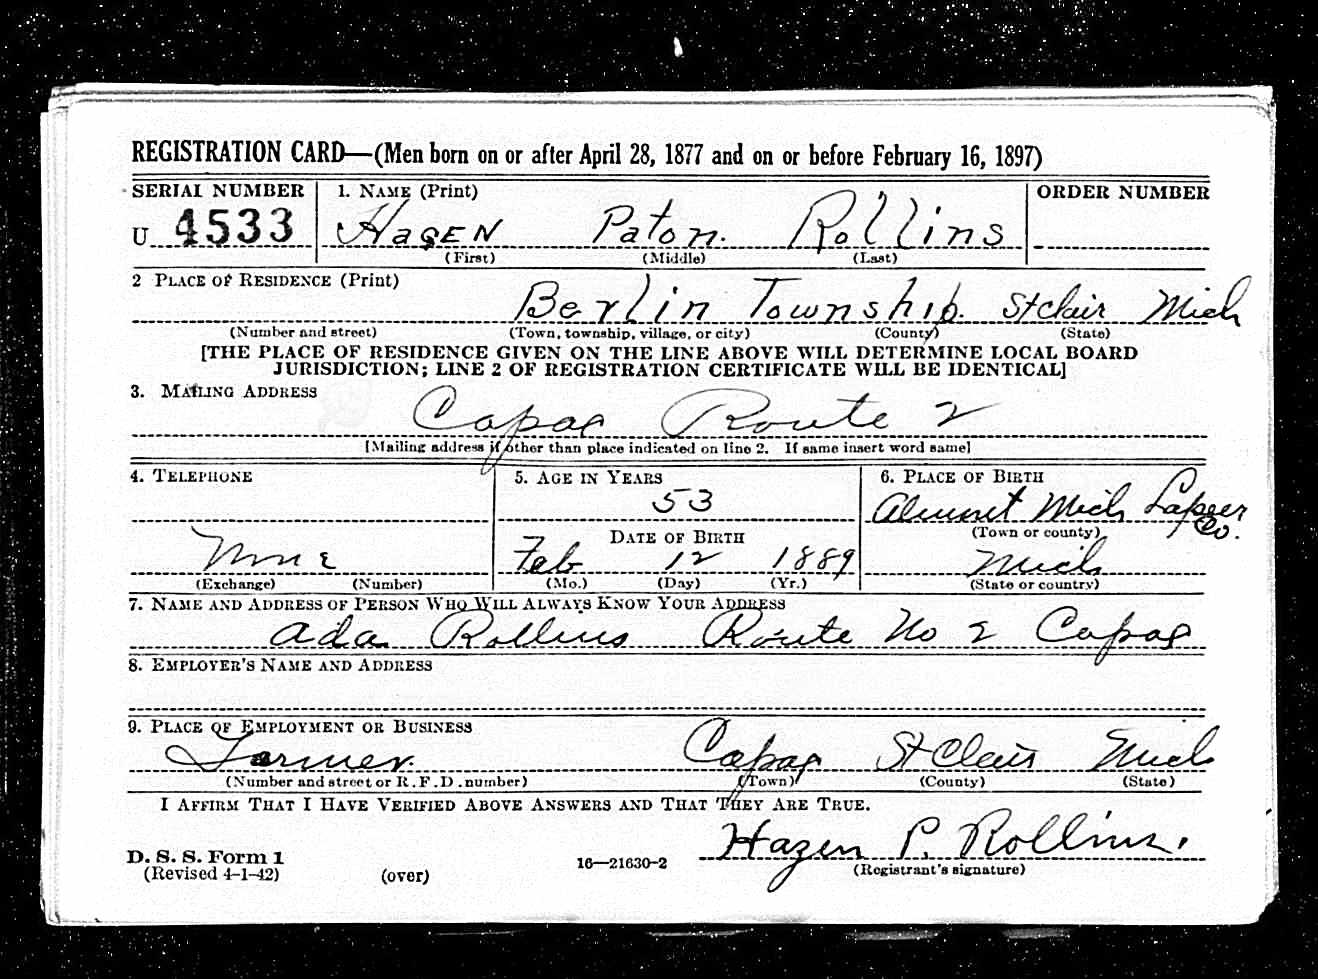 REGISTRATION CARD—(Men born on or after April 28, 1877 and on or before February 16, 1897)
SERIAL NUMBER 1. NAME (Print) ORDER NUMBER
U 4533 HAZEN Paton. Rollins
(First) (Middle) (Last)
2 PLACE OF RESIDENCE (Print)
Berlin Township. St Clair Mich
(Number and street) (Town, township, village, or city) (County) (State)
[THE PLACE OF RESIDENCE GIVEN ON THE LINE ABOVE WILL DETERMINE LOCAL BOARD
JURISDICTION; LINE 2 OF REGISTRATION CERTIFICATE WILL BE IDENTICAL]
3. MAILING ADDRESS
Capac Route 2
[Mailing address if other than place indicated on line 2. If same insert word same]
4. TELEPHONE 5. AGE IN YEARS 6. PLACE OF BIRTH
53 Almont Mich Lapeer Co.
(Town or county)
DATE OF BIRTH
None Feb 12 1889 Mich
(Exchange) (Number) (Mo.) (Day) (Yr.) (State or country)
7. NAME AND ADDRESS OF PERSON WHO WILL ALWAYS KNOW YOUR ADDRESS
Ada Rollins Route No 2 Capac
8. EMPLOYER'S NAME AND ADDRESS
9. PLACE OF EMPLOYMENT OR BUSINESS
Farmer. Capac St Clair Mich
(Number and street or R. F. D. number) (Town) (County) (State)
I AFFIRM THAT I HAVE VERIFIED ABOVE ANSWERS AND THAT THEY ARE TRUE.
Hazen P. Rollins.
D. S. S. Form 1
(Revised 4-1-42) (over) 16—21630-2 (Registrant's signature)